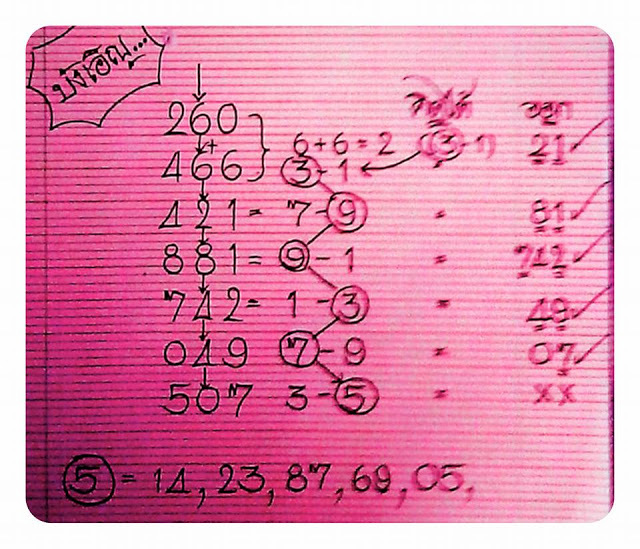 บังเอิญ...
ออก
260
6+6=2 (3-1) 21
466 3-1
421= 7-9 = 81
881= 9-1 = 742
742= 1-3 = 49
049 7-9 = 07
507 3-5 = xx
5 = 14, 23, 87, 69, 05,